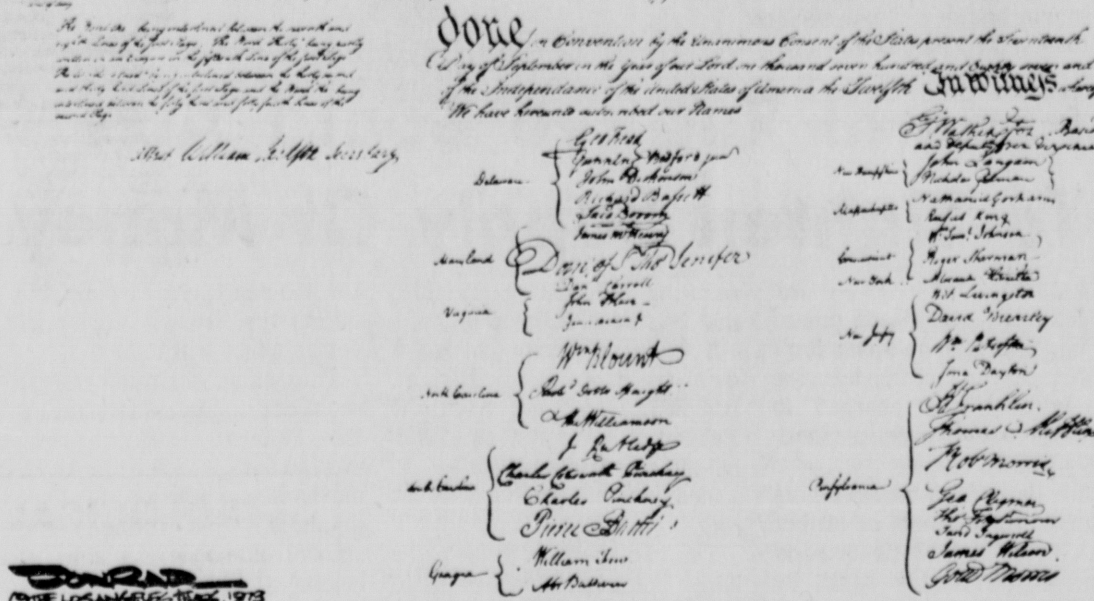 The Word the, being interlined between the seventh and
eighth Lines of the first Page, The Word Thirty being partly
written on an Erazure in the fifteenth Line of the first Page
and thirty third Lines of the first Page and the Word the being
interlined between the forty third and forty fourth Lines of the
second Page.
Attest William Jackson Secretary
done in Convention by the Unanimous Consent of the States present the Seventeenth
Day of September in the Year of our Lord one thousand seven hundred and Eighty seven and
of the Independance of the United States of America the Twelfth In witness whereof
We have hereunto subscribed our Names
Delaware
Geo: Read
Gunning Bedford jun
John Dickinson
Richard Bassett
Jaco: Broom
Maryland
James McHenry
Dan of St Thos Jenifer
Danl Carroll
Virginia
John Blair
North Carolina
Wm Blount
Richd Dobbs Spaight
Hu Williamson
South Carolina
J. Rutledge
Charles Cotesworth Pinckney
Charles Pinckney
Pierce Butler
Georgia
William Few
Abr Baldwin
Go Washington Presidt
and deputy from Virginia
New Hampshire
John Langdon
Nicholas Gilman
Massachusetts
Nathaniel Gorham
Rufus King
Connecticut
Wm Saml Johnson
Roger Sherman
New York
Alexander Hamilton
New Jersey
Wil: Livingston
David Brearley
Wm Paterson
Jona: Dayton
Pensylvania
B Franklin
Thomas Mifflin
Robt Morris
Geo. Clymer
Thos FitzSimons
Jared Ingersoll
James Wilson
Gouv Morris
CONRAD
© THE LOS ANGELES TIMES, 1973